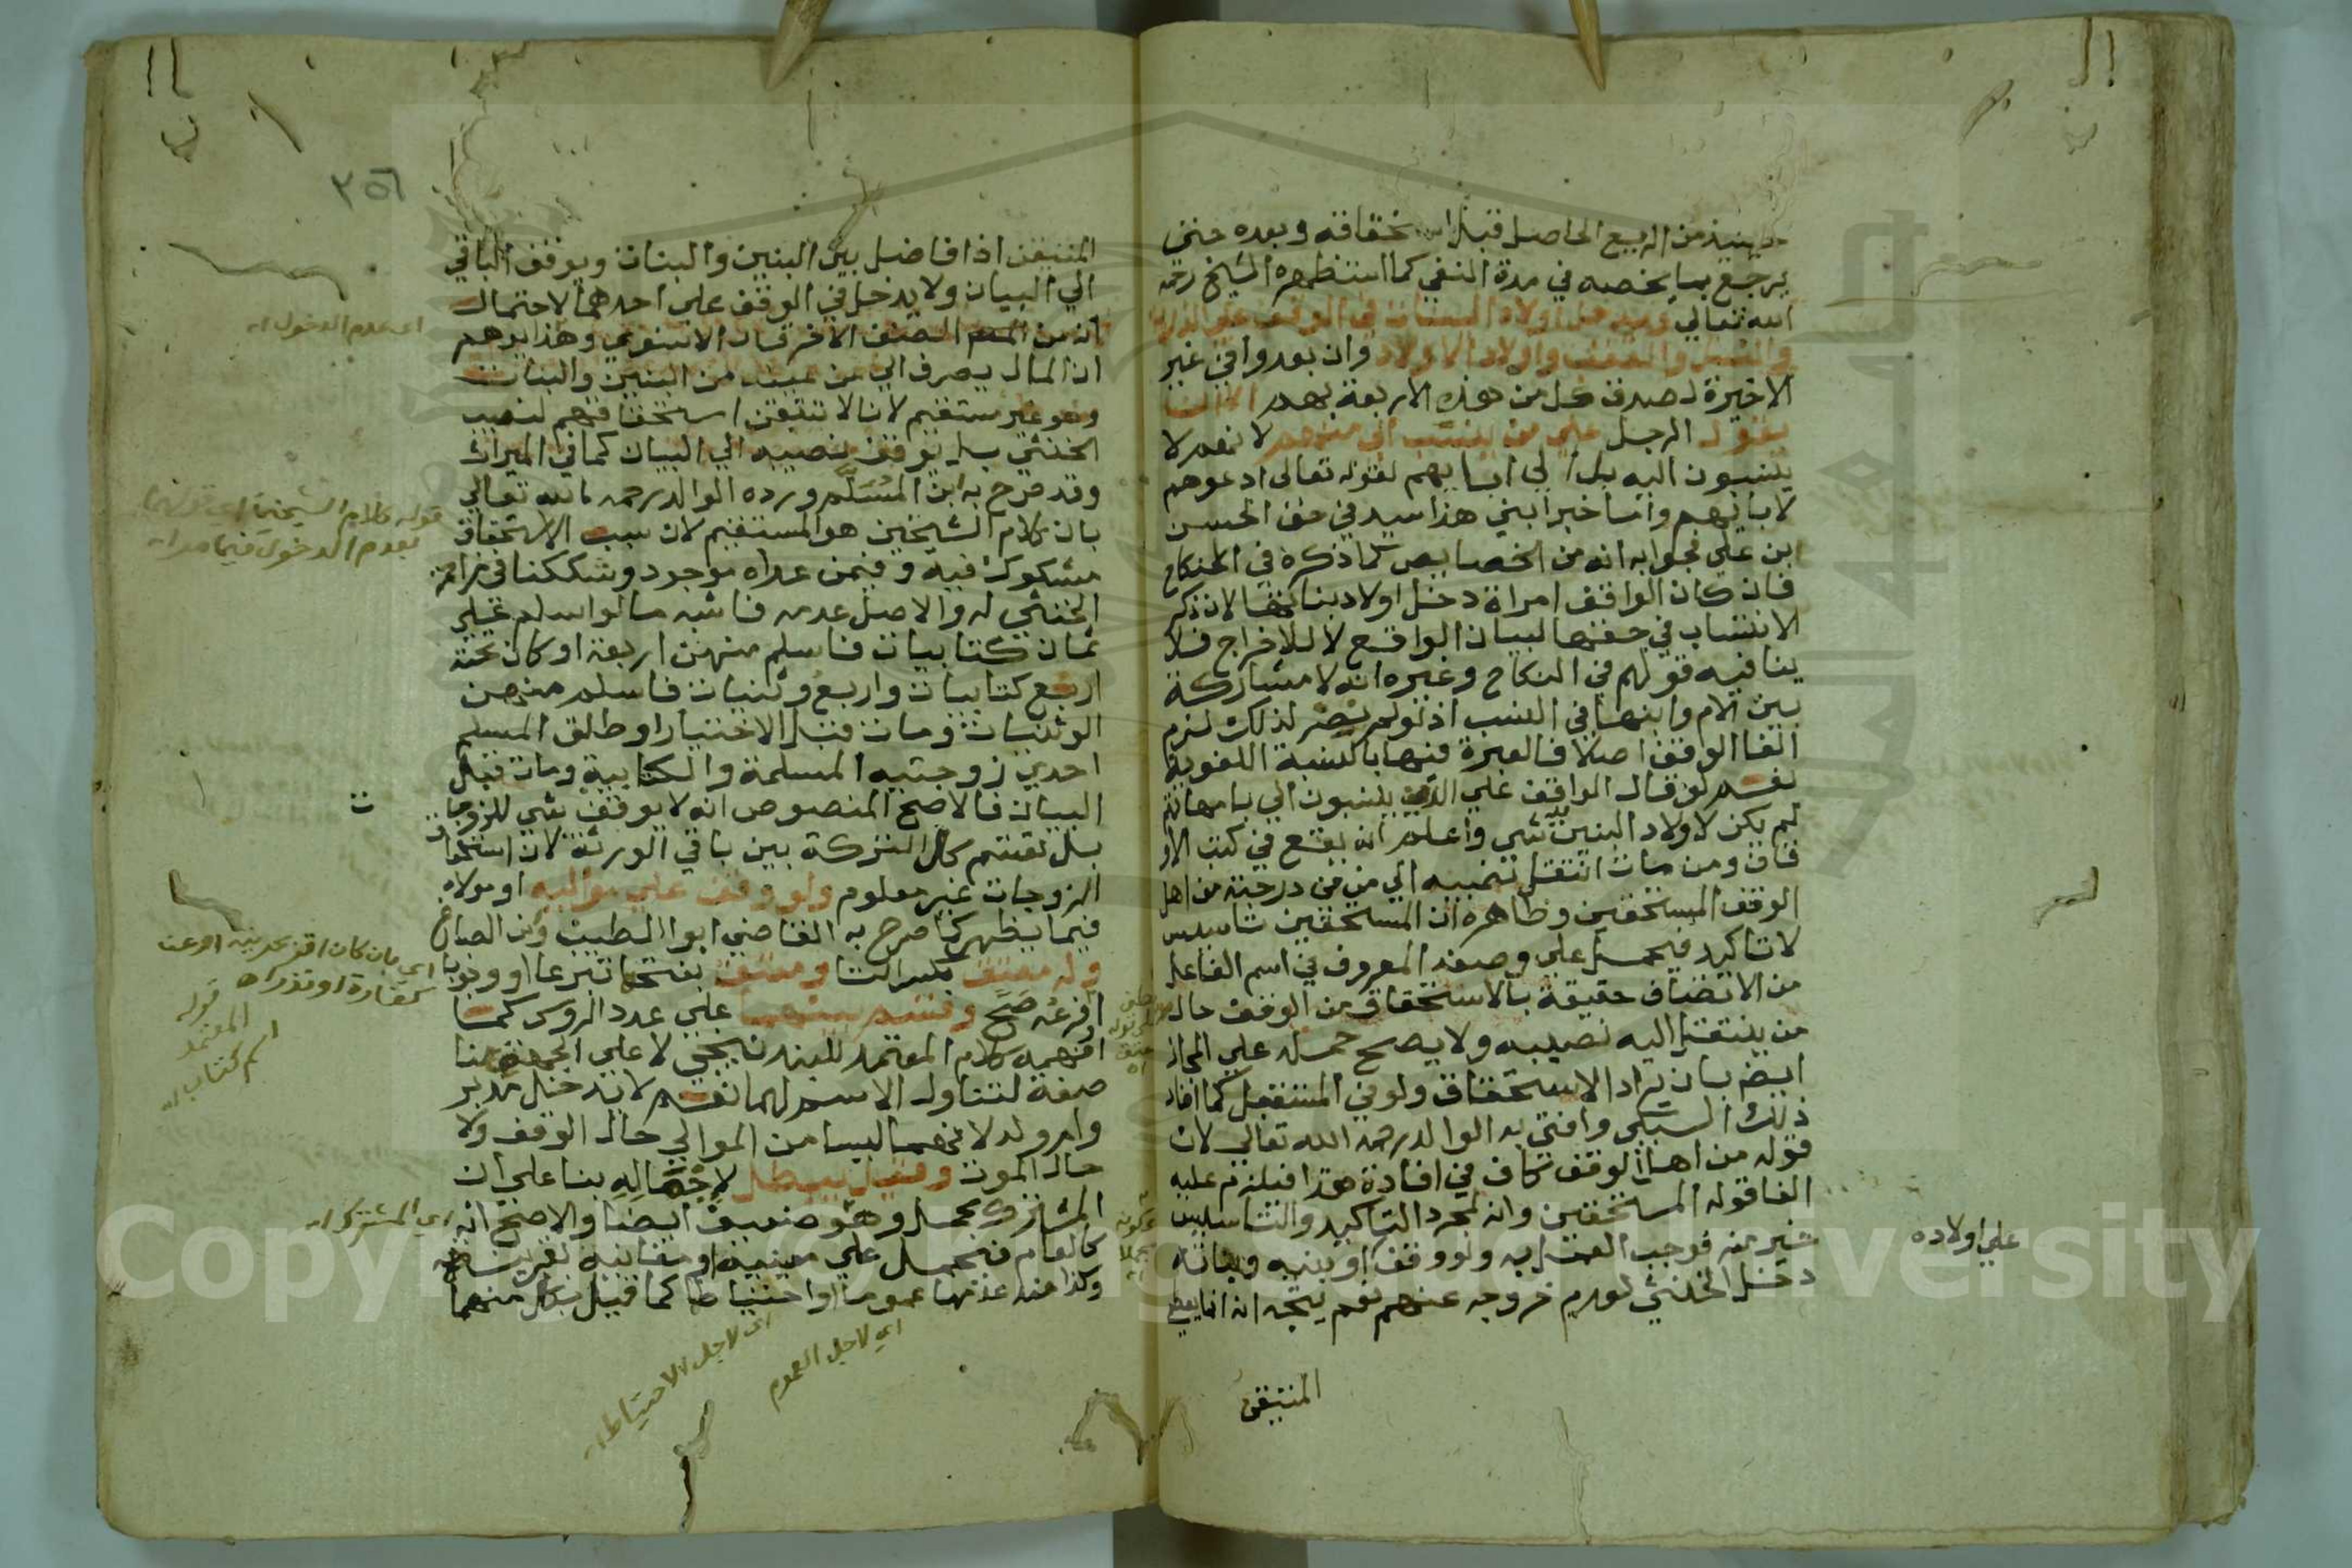 حينئذ من الريع الحاصل قبل استحقاقه وبعده حتى
يرجع بما يخصه في مدة النفي كما استظهره الشيخ رحمه
الله تعالى ويدخل اولاد البنات في الوقف على الذرية
والنسل والعقب واولاد الاولاد وان بعدوا في غير
الاخيرة لصدق كل من هذه الاربعة بهم الا ان
يقول الرجل على من ينتسب الي منهم لانهم لا
ينسبون اليه بل الى ابايهم لقوله تعالى ادعوهم
لابائهم واما خبر ابني هذا سيد في حق الحسن
ابن علي فجوابه انه من الخصايص كما ذكره في النكاح
فان كان الواقف امراة دخل اولاد بناتها لان ذكر
الانتساب في حقها لبيان الواقع لا للاخراج فلا
ينافيه قولهم في النكاح وغيره انه لا مشاركة
بين الام وابنها في النسب اذ لو لم نصر لذلك لزم
الغا الوقف اصلا فالعبرة فيها بالنسبة اللغوية
نعم لو قال الواقف على الذين ينسبون الي بامهاتهم
لم يكن لاولاد البنين شي واعلم انه يقع في كتب الاو
قاف ومن مات انتقل نصيبه الى من في درجته من اهل
الوقف المستحقين وظاهره ان المستحقين تاسيس
لا تاكيد فيحمل على وضعه المعروف في اسم الفاعل
من الاتصاف حقيقة بالاستحقاق من الوقف حال
من ينتقل اليه نصيبه ولا يصح حمله على المجاز
ايضا بان يراد الاستحقاق ولو في المستقبل كما افاد
ذلك السبكي وافتى به الوالد رحمه الله تعالى لان
قوله من اهل الوقف كاف في افادة هذا فيلزم عليه
الغا قوله المستحقين وانه لمجرد التاكيد والتاسيس
خير منه فوجب العمل به ولو وقف على اولاده او بنيه وبناته
دخل الخنثي لعدم خروجه عنهم نعم يتجه انه انما يعطى
المتيقن
٣٥٦
المتيقن اذا فاضل بين البنين والبنات ويوقف الباقي
الى البيان ولا يدخل في الوقف على احدهما لاحتمال
انه من الصنف الاخر قال الاسنوي وهذا يوهم
ان المال يصرف الى من عينه من البنين والبنات
وهو غير مستقيم لانا لا نتيقن استحقاقهم لنصيب
الخنثي بل يوقف نصيبه الى البيان كما في الميراث
وقد صرح به ابن المسلم ورده الوالد رحمه الله تعالى
بان كلام الشيخين هو المستقيم لان سبب الاستحقاق
مشكوك فيه وفيمن عداه موجود وشككنا في مزاحمة
الخنثي له والاصل عدمه فاشبه ما لو اسلم على
ثمان كتابيات فاسلم منهن اربعة او كان تحته
اربع كتابيات واربع وثنيات فاسلم منهن
الوثنيات ومات قبل الاختيار او طلق المسلم
احدى زوجتيه المسلمة والكتابية ومات قبل
البيان فالاصح المنصوص انه لا يوقف شي للزوجات
بل تقسم كل التركة بين باقي الورثة لان استحقاق
الزوجات غير معلوم ولو وقف على مواليه او مولاه
فيما يظهر كما صرح به القاضي ابو الطيب وابن الصباغ
وله معتق بكسر التا ومعتق بفتحها تبرعا او وجوبا
او فرعه صح وقسم بينهما على عدد الروس كما
افهمه كلام المعتمد للبندنيجي لا على الجهتين
صفة لتناول الاسم لهما نعم لا يدخل مدبر
وام ولد لانهما ليسا من الموالي حال الوقف ولا
حال الموت وقيل يبطل لاجماله بنا على ان
المشترك مجمل وهو ضعيف ايضا والاصح انه
كالعام فيحمل على معنييه او معانيه لقرينة
وكذا عند عدمها عموما او احتياطا كما قيل بكل منهما
اي عدم الدخول اه
قوله كلام الشيخين اي قولهما
بعدم الدخول فيما مر اه
اي بان كان اقر بحريته او عن
كفارة او نذر اه
قوله
المعتمد
اسم كتاب اه
اي المشترك اه
اي لاجل العموم
اي لاجل الاحتياط اه
Copyright © King Saud University